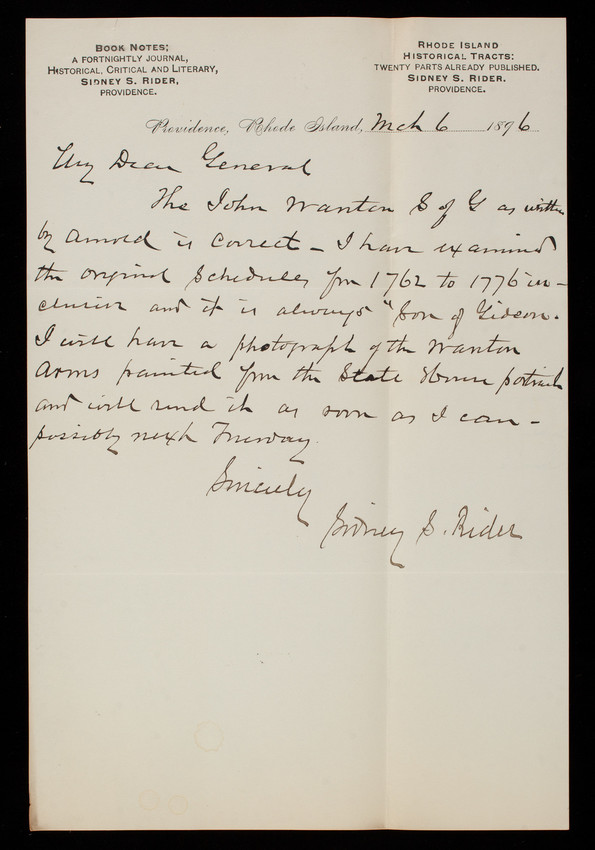 BOOK NOTES;
A FORTNIGHTLY JOURNAL,
HISTORICAL, CRITICAL AND LITERARY,
SIDNEY S. RIDER,
PROVIDENCE.
RHODE ISLAND
HISTORICAL TRACTS:
TWENTY PARTS ALREADY PUBLISHED.
SIDNEY S. RIDER.
PROVIDENCE.
Providence, Rhode Island, Mch 6 1896
My Dear General
The John Wanton S of G as written
by Arnold is correct — I have examined
the original Schedules from 1762 to 1776 in-
clusive and it is always "Son of Gideon.
I will have a photograph of the Wanton
Arms painted from the State House portrait
and will send it as soon as I can -
possibly next Tuesday.
Sincerely
Sidney S. Rider